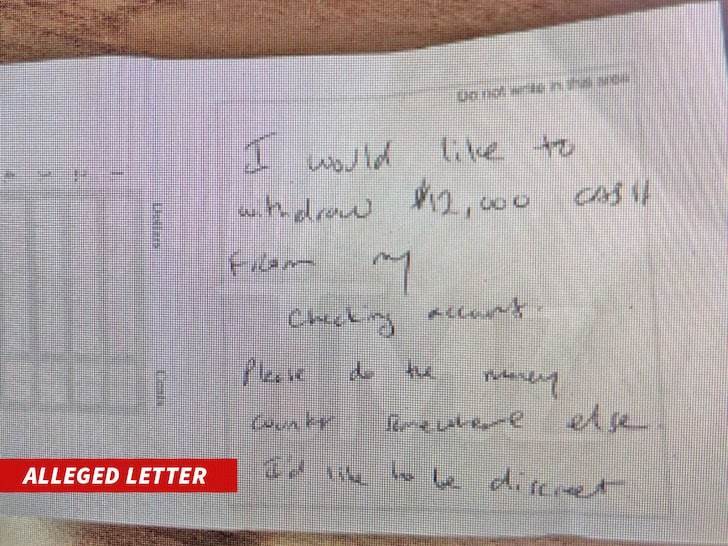 Do not write in this area
I would like to
withdraw $12,000 CASH
From my
checking account.
Please do the money
counter somewhere else
I'd like to be discreet
Dollars
Cents
ALLEGED LETTER